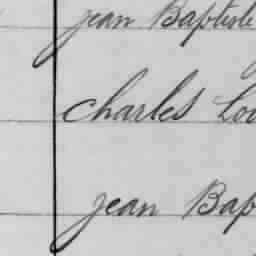 jean Baptiste
Charles Lou
jean Bap